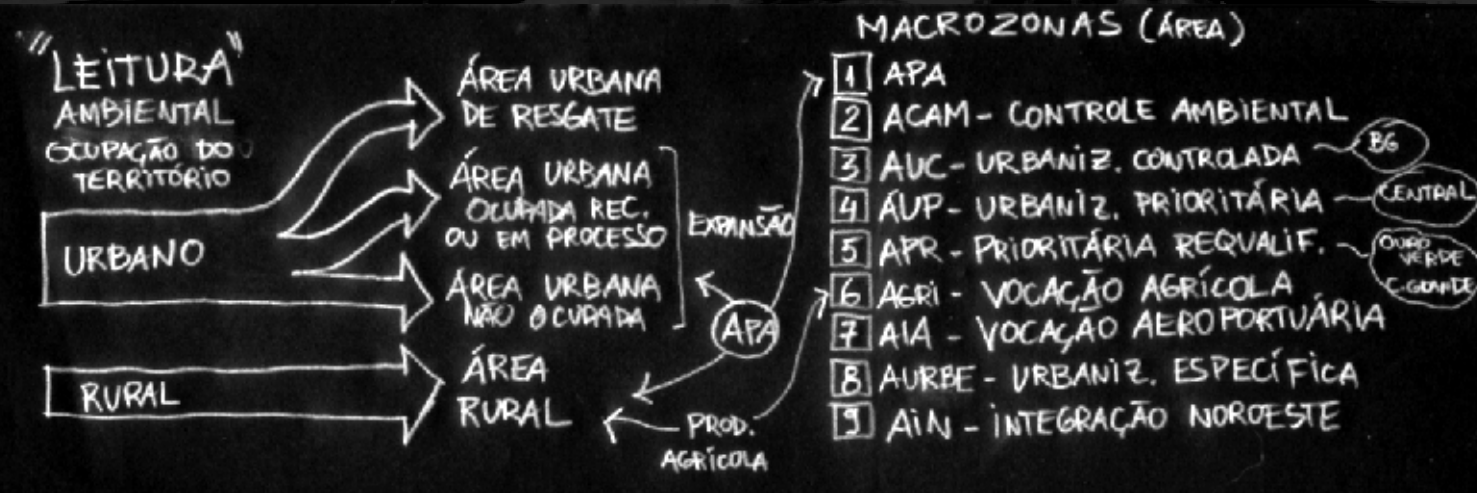 "LEITURA"
AMBIENTAL
OCUPAÇÃO DO
TERRITÓRIO
URBANO
RURAL
ÁREA URBANA
DE RESGATE
ÁREA URBANA
OCUPADA REC.
OU EM PROCESSO
ÁREA URBANA
NÃO OCUPADA
ÁREA
RURAL
EXPANSÃO
APA
PROD.
AGRÍCOLA
MACROZONAS (ÁREA)
1 APA
2 ACAM - CONTROLE AMBIENTAL
3 AUC - URBANIZ. CONTROLADA
BG
4 ÁUP - URBANIZ. PRIORITÁRIA
CENTRAL
5 APR - PRIORITÁRIA REQUALIF.
OURO
VERDE
C.GRANDE
6 AGRI - VOCAÇÃO AGRÍCOLA
7 AIA - VOCAÇÃO AEROPORTUÁRIA
8 AURBE - URBANIZ. ESPECÍFICA
9 AIN - INTEGRAÇÃO NOROESTE